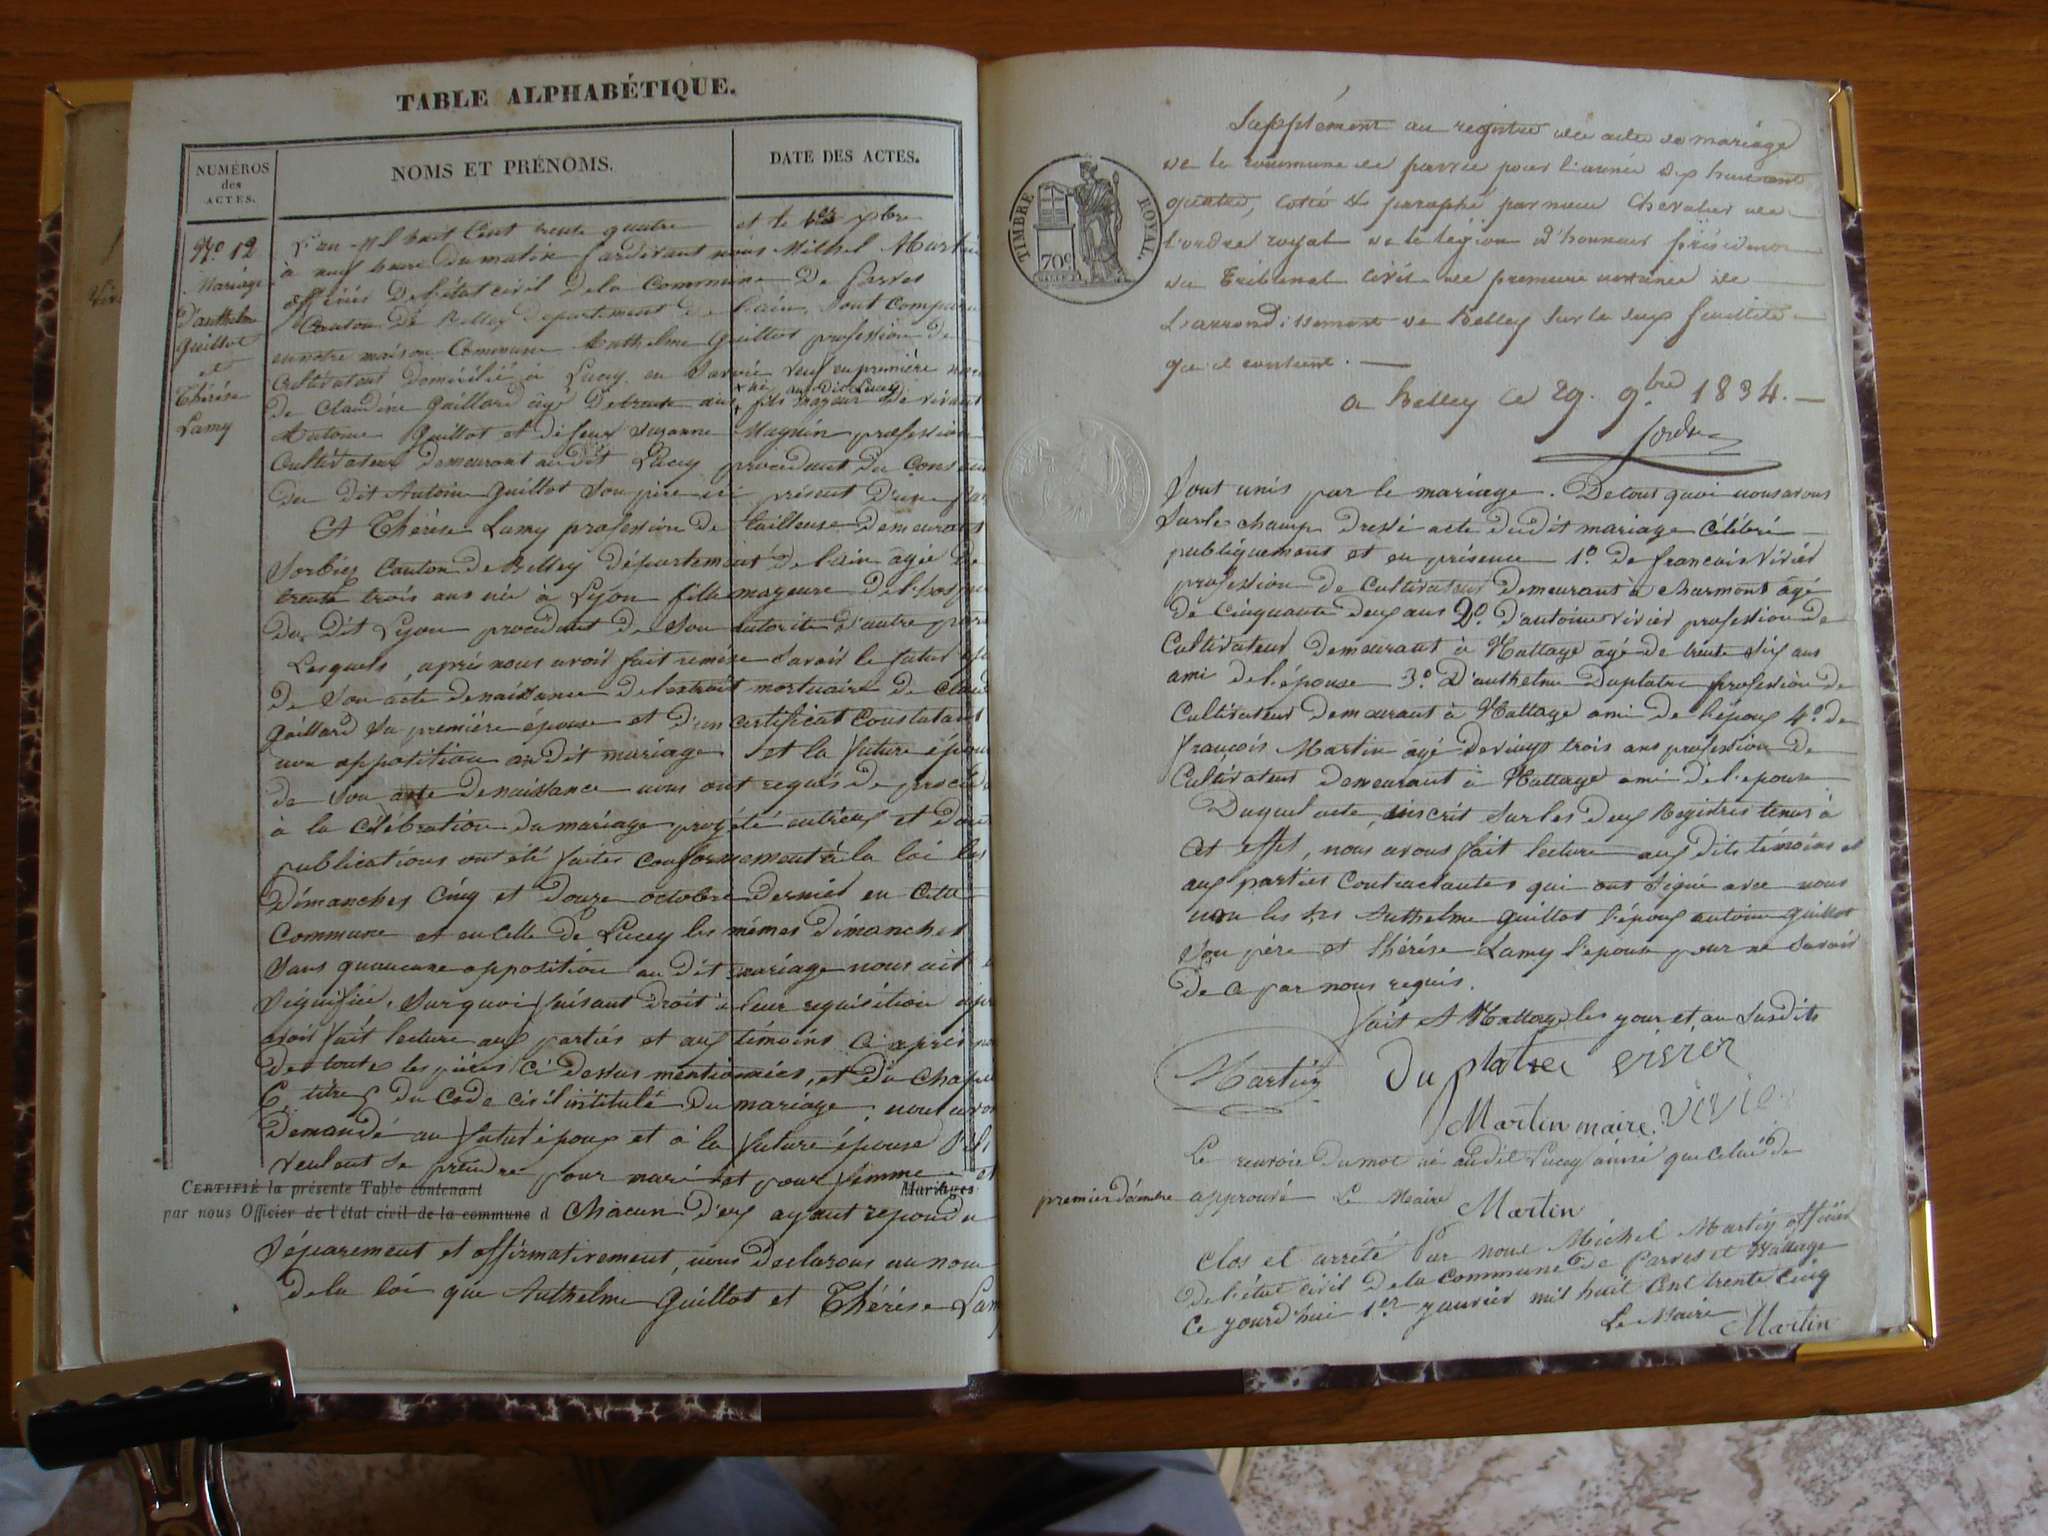 TABLE ALPHABÉTIQUE.
NUMÉROS
des
ACTES.
NOMS ET PRÉNOMS.
DATE DES ACTES.
No. 12
Mariage
D'anthelme
Guillot
et
Thérèse
Lamy
L'an mil huit Cent trente quatre et le 1er xbre
à neuf heure du matin pardevant nous Michel Martin
officier De l'état civil De la Commune De Parves
Canton De Belley Département De l'ain, Sont Comparu
en notre maison Commune Anthelme Guillot profession De
Cultivateur Domicilié à Lucey en Savoie veuf en première
né audit Lucey
De Claudine Gaillard âgé De trente ans fils majeur De vivant
Antoine Guillot et De feue Suzanne Magnin profession
Cultivateur Demeurant audit Lucey procédant du Cons
du dit Antoine Guillot Son père ici présent D'une par
Et Thérèse Lamy profession De tailleuse Demeurant
Sorbier Canton De Belley Département De l'ain âgée De
trente trois ans née à Lyon fille majeure De l'hospi
Du Dit Lyon procédant De Son autorité D'autre part
Lesquels, après nous avoir fait remise Savoir le futur
De Son acte De naissance De l'extrait mortuaire De Claud
Gaillard Sa première épouse et D'un Certificat Constatant
non opposition au Dit mariage et la future épou
De Son acte De naissance nous ont requis De procéd
à la Célébration Du mariage projété entr'eux et Don
publications ont été faites Conformement à la loi les
Dimanches Cinq et Douze octobre Dernier en Cette
Commune et en Celle De Lucey les mêmes Dimanches
Sans qu'aucune opposition au Dit mariage nous ait
Signifiée. Sur quoi faisant Droit à leur requisition apr
avoir fait lecture aux parties et aux témoins Ci après
De toutes les pièces Ci Dessus mentionnées, et Du Chapi
6 titre 5 Du Code Civil intitulé Du mariage, nous avon
Demandé au futur époux et à la future épouse S'il
veulent Se prendre pour mari et pour femme et
CERTIFIÉ la présente Table contenant Mariages
par nous Officier de l'état civil de la commune d Chacun D'eux ayant repondu
Séparement et affirmativement, nous Declarons au nom
De la loi que Anthelme Guillot et Thérèse Lam
TIMBRE ROYAL.
70c
Supplément au registre des actes de mariage
de la commune de parves pour l'année dix huit cent
quatre, coté & paraphé par nous Chevalier de
l'ordre royal de la légion d'honneur président
du Tribunal Civil de première instance de
L'arrondissement de Belley Sur le feuillets
qu'il contient.
à Belley le 29. 9bre 1834.
Sont unis par le mariage. De tout quoi nous avons
Sur le champ Dressé acte du dit mariage Célébré
publiquement et en présence 1º. De françois Vivier
profession De Cultivateur Demeurant à Charmont âgé
De Cinquante Deux ans 2º. D'antoine Vivier profession De
Cultivateur Demeurant à Nattage âgé De trente Six ans
ami De l'épouse 3º. D'anthelme Duplatre profession De
Cultivateur Demeurant à Nattage ami De l'époux 4º. De
françois Martin âgé De vingt trois ans profession De
Cultivateur Demeurant à Nattage ami De l'épouse
Duquel acte, inscrit Sur les Deux Registres tenus à
Cet effet, nous avons fait lecture aux Dits témoins et
aux parties Contractantes qui ont Signé avec nous
non les Anthelme Guillot l'époux antoine Guillot
Son père et thérèse Lamy l'épouse pour ne Savoir
De Ce par nous requis.
fait A Nattage les jour et an Susdits
Martin Duplatre vivier
Martin maire. Vivier
Le renvoie Du mot né audit Lucey ainsi que Celui De
premier décembre approuvé Le Maire Martin
Clos et arrêté Par nous Michel Martin officier
De l'état civil De la Commune De Parves et Nattage
Ce jourd'hui 1er janvier mil huit Cent trente Cinq
Le Maire
Martin